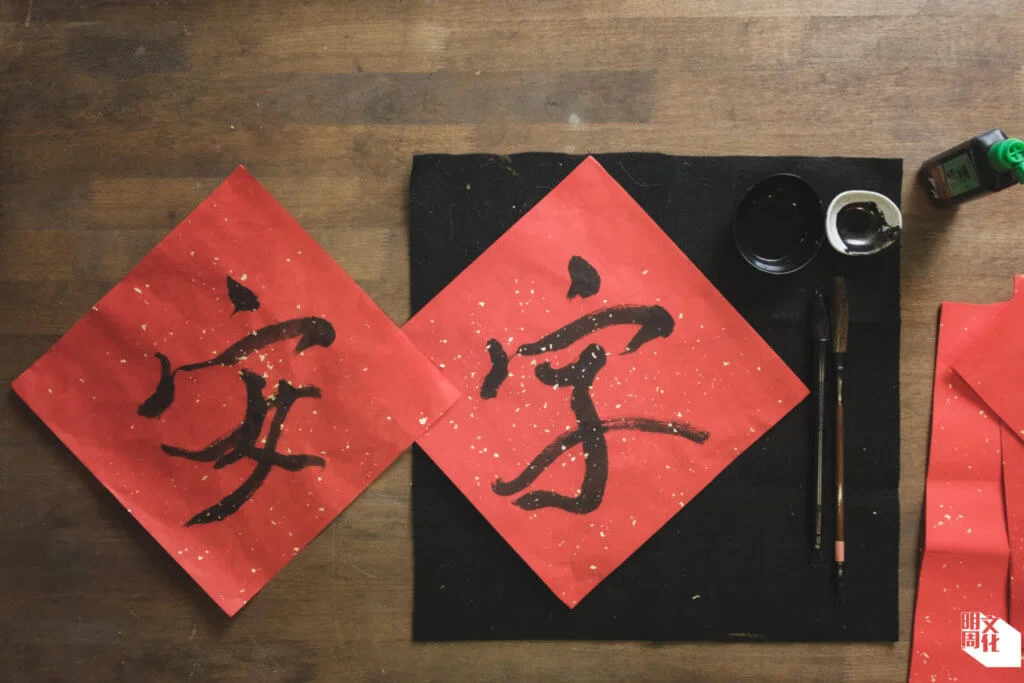 安
字
明周
文化